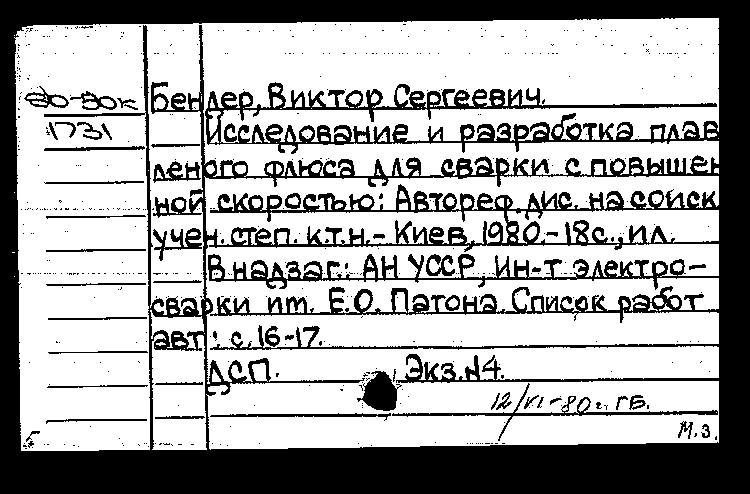 80-80к
1731
Бендер, Виктор Сергеевич.
Исследование и разработка плав
леного флюса для сварки с повышен
ной скоростью: Автореф. дис. на соиск
учен. степ. к.т.н. - Киев, 1980. - 18с., ил.
В надзаг.: АН УССР, Ин-т электро-
сварки им. Е.О. Патона. Список работ
авт.: с. 16-17.
ДСП. Экз. №4.
12/XI-80г. ГБ.
М.З.